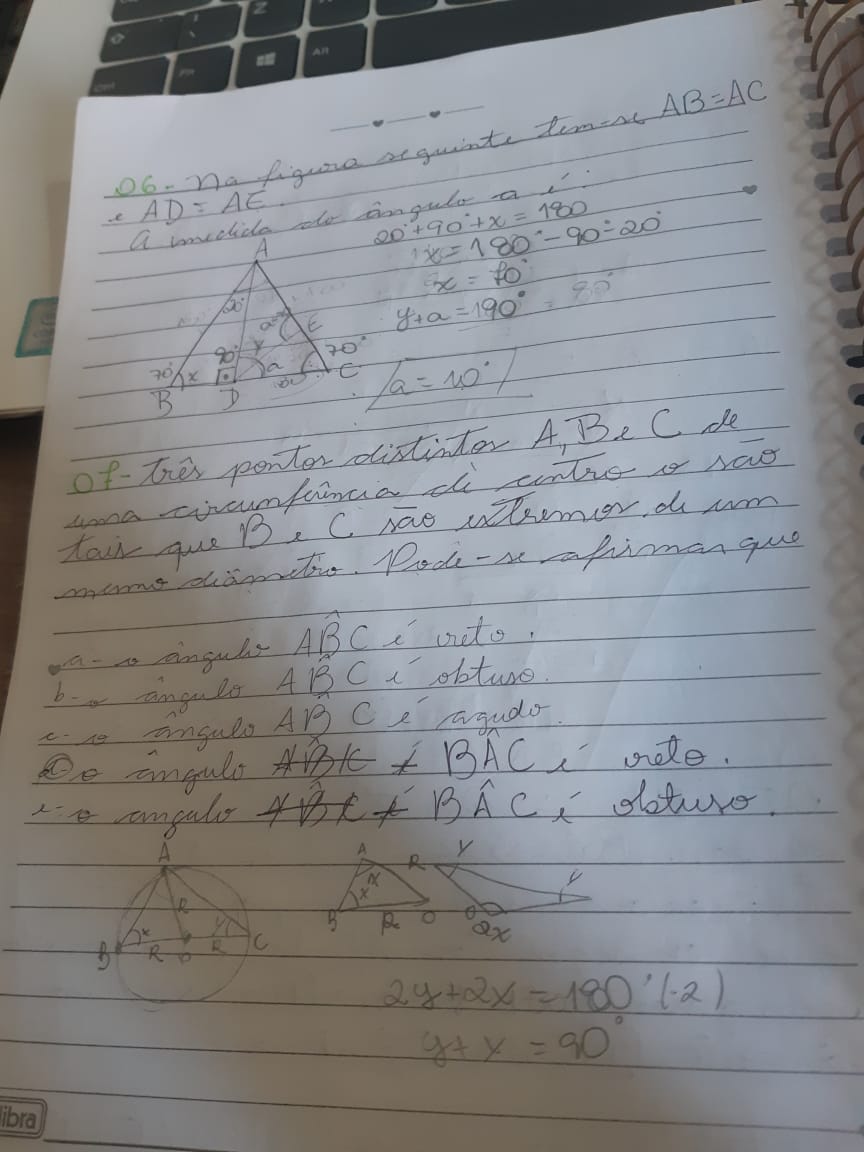 06- Na figura seguinte tem-se AB=AC
e AD=AE.
A medida do ângulo a é:
20°+90°+x=180
x=180°-90=20°
x=70°
y+a=190° = 80°
a=10°
A
20°
E
90°
y
a
70°
70°
x
a
B
D
C
07- três pontos distintos A, B e C de
uma circunferência de centro o são
tais que B e C são extremos de um
mesmo diâmetro. Pode-se afirmar que
a- o ângulo AB̂C é reto.
b- o ângulo AB̂C é obtuso.
c- o ângulo AB̂C é agudo.
d o ângulo AB̂C é BÂC é reto.
e- o angulo AB̂C é BÂC é obtuso.
A
R
B
x
R
R
y
C
A
x
x
B
R
O
R
y
y
O
2x
2y+2x=180°(-2)
y+x=90°
libra
Ctrl
Fn
Alt
Z